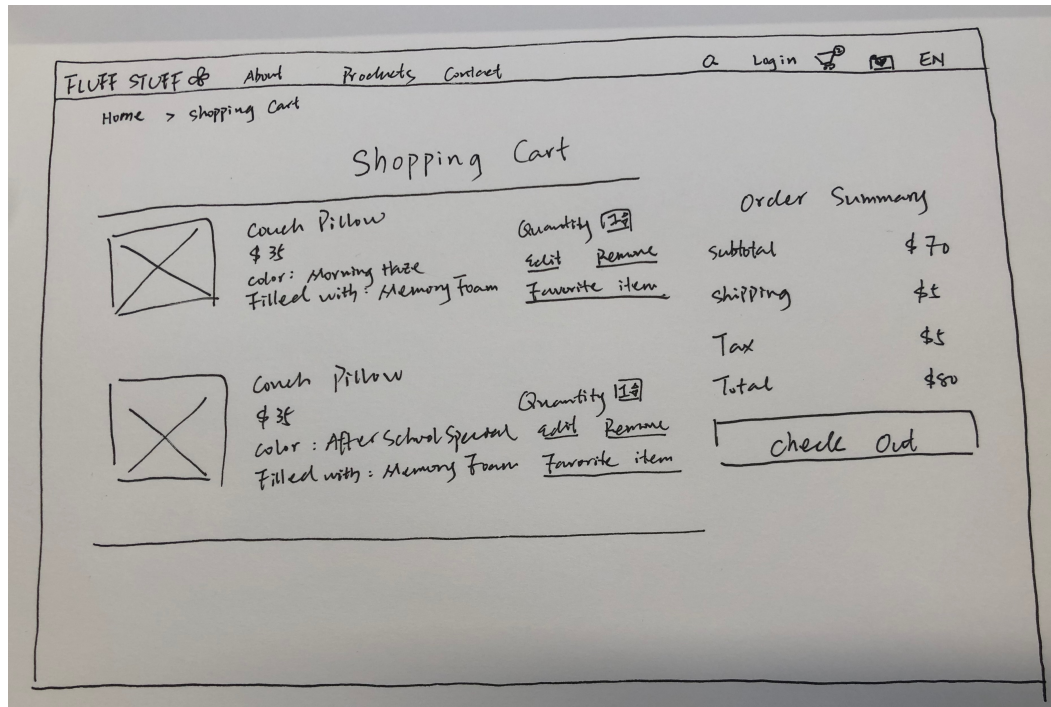 FLUFF STUFF About Products Contact Login EN
Home > Shopping Cart
Shopping Cart
Couch Pillow
$35
color: Morning Haze
Filled with: Memory Foam
Quantity 1
Edit Remove
Favorite item
Couch Pillow
$35
color: After School Special
Filled with: Memory Foam
Quantity 1
Edit Remove
Favorite item
Order Summary
Subtotal $70
Shipping $5
Tax $5
Total $80
Check Out